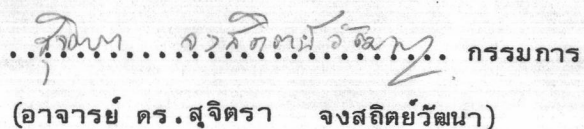 สุจิตรา จงสถิตย์วัฒนา กรรมการ
(อาจารย์ ดร.สุจิตรา จงสถิตย์วัฒนา)